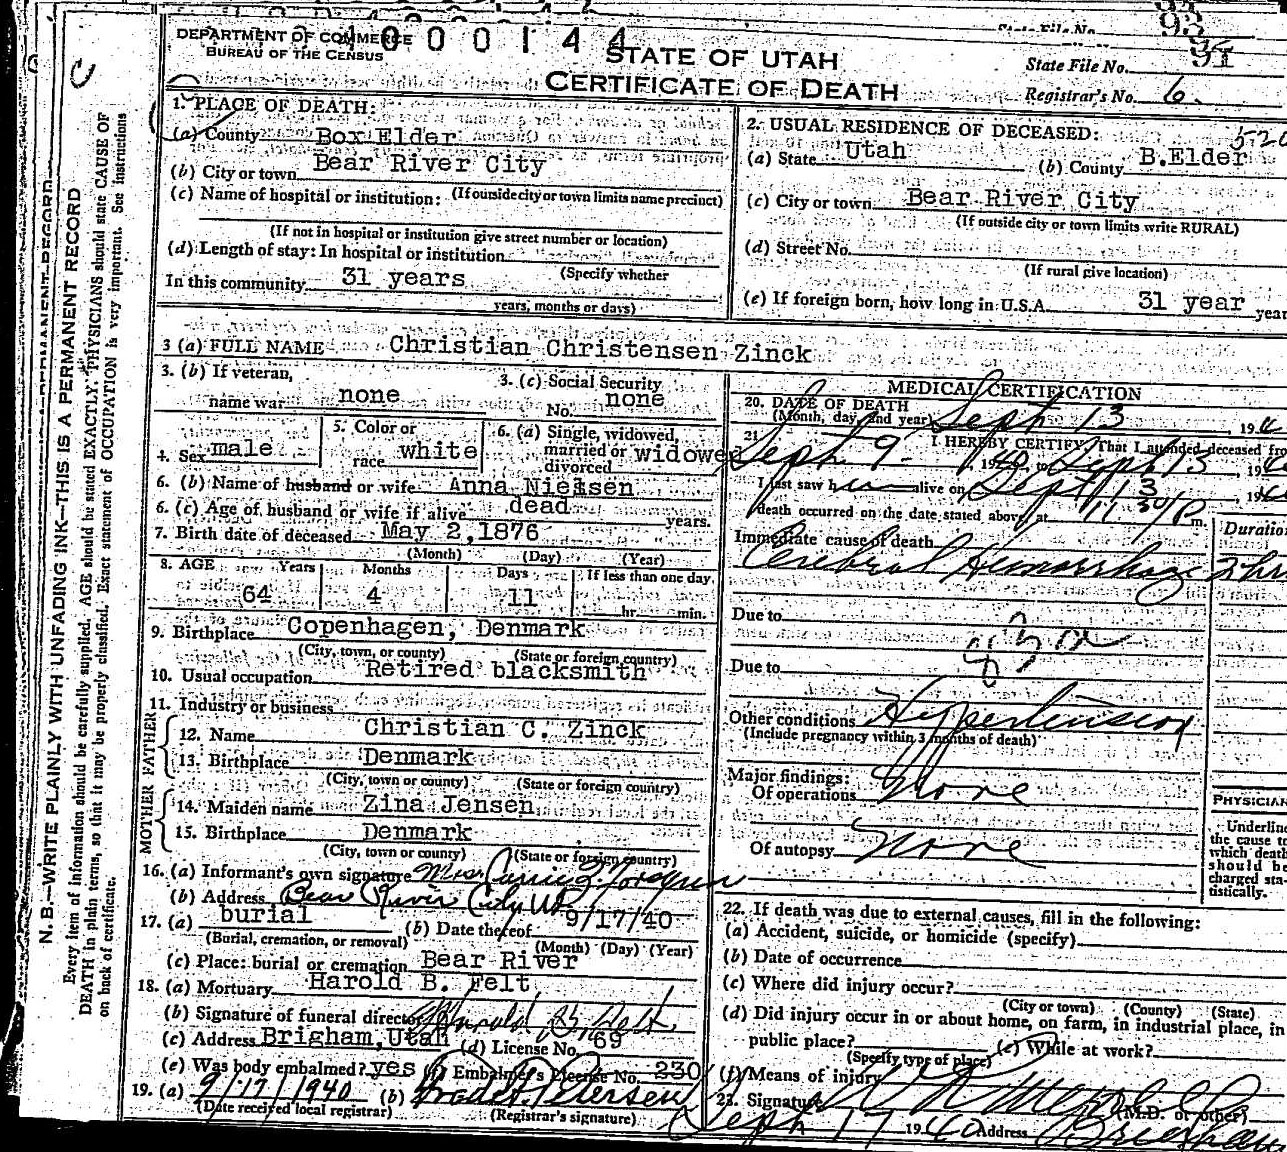 DEPARTMENT OF COMMERCE
BUREAU OF THE CENSUS
1000144
STATE OF UTAH
CERTIFICATE OF DEATH
State File No. 91
Registrar's No. 6.
1. PLACE OF DEATH:
(a) County Box Elder
(b) City or town Bear River City
(If outside city or town limits name precinct)
(c) Name of hospital or institution:
(If not in hospital or institution give street number or location)
(d) Length of stay: In hospital or institution
(Specify whether
In this community 31 years
years, months or days)
2. USUAL RESIDENCE OF DECEASED:
(a) State Utah (b) County B.Elder
(c) City or town Bear River City
(If outside city or town limits write RURAL)
(d) Street No.
(If rural give location)
(e) If foreign born, how long in U.S.A. 31 year year
3 (a) FULL NAME Christian Christensen Zinck
3. (b) If veteran,
name war none
3. (c) Social Security
No. none
4. Sex male
5. Color or
race white
6. (a) Single, widowed,
married or
divorced widowed
6. (b) Name of husband or wife Anna Nielsen
6. (c) Age of husband or wife if alive dead years.
7. Birth date of deceased May 2,1876
(Month) (Day) (Year)
8. AGE Years Months Days If less than one day.
64 4 11 hr. min.
9. Birthplace Copenhagen, Denmark
(City, town, or county) (State or foreign country)
10. Usual occupation Retired blacksmith
11. Industry or business
FATHER
12. Name Christian C. Zinck
13. Birthplace Denmark
(City, town or county) (State or foreign country)
MOTHER
14. Maiden name Zina Jensen
15. Birthplace Denmark
(City, town or county) (State or foreign country)
16. (a) Informant's own signature Mrs.
(b) Address Bear River City Ut
17. (a) burial (b) Date thereof 9/17/40
(Burial, cremation, or removal) (Month) (Day) (Year)
(c) Place: burial or cremation Bear River
18. (a) Mortuary Harold B. Felt
(b) Signature of funeral director Harold B. Felt
(c) Address Brigham,Utah (d) License No. 69
(e) Was body embalmed? yes Embalmer's License No. 230
19. (a) 9/17/1940 (b) Petersen
(Date received local registrar) (Registrar's signature)
MEDICAL CERTIFICATION
20. DATE OF DEATH
(Month, day, and year) Sept 13, 194
21. I HEREBY CERTIFY, That I attended deceased fro
Sept 9-, 1940, to Sept 13, 194
I last saw h alive on Sept 13, 194
death occurred on the date stated above, at 11 30/P m.
Duration
Immediate cause of death
Cerebral Hemorrhage 2 hrs
Due to
Due to
Other conditions Hypertension
(Include pregnancy within 3 months of death)
Major findings:
Of operations None
Of autopsy None
PHYSICIAN
Underline
the cause to
which death
should be
charged sta-
tistically.
22. If death was due to external causes, fill in the following:
(a) Accident, suicide, or homicide (specify)
(b) Date of occurrence
(c) Where did injury occur?
(City or town) (County) (State)
(d) Did injury occur in or about home, on farm, in industrial place, in
public place?
(Specify type of place) (e) While at work?
(f) Means of injury
23. Signature (M.D. or other)
Sept 17 1940 Address Brigham
N. B.—WRITE PLAINLY WITH UNFADING INK—THIS IS A PERMANENT RECORD
Every item of information should be carefully supplied. AGE should be stated EXACTLY. PHYSICIANS should state CAUSE OF
DEATH in plain terms, so that it may be properly classified. Exact statement of OCCUPATION is very important. See instructions
on back of certificate.